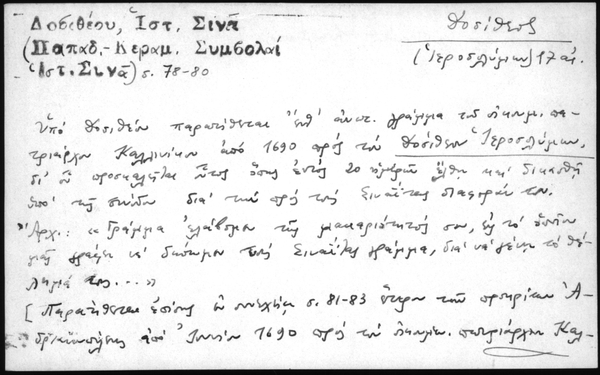 Δοσιθέου, Ἱστ. Σινᾶ
(Παπαδ.-Κεραμ. Συμβολαί
Ἱστ. Σινᾶ) σ. 78-80
Δοσίθεος
(Ἱεροσολύμων) 17 αἰ.
Ὑπὸ Δοσιθέου παρατίθεται γράμμα τοῦ οἰκουμ. πα-
τριάρχου Καλλινίκου ἀπὸ 1690 πρὸς τὸν Δοσίθεον Ἱεροσολύμων,
δι' οὗ προσκαλεῖται οὗτος ὅπως ἐντὸς 20 ἡμερῶν ἔλθῃ καὶ δικασθῇ
ὑπὸ τῆς συνόδου διὰ τὴν πρὸς τοὺς Σιναΐτας διαφοράν του.
Ἀρχ.: «Γράμμα ἐλάβομεν τῆς μακαριότητός σου, εἰς τὸ ὁποῖον
μᾶς γράφει νὰ δώσωμεν τοὺς Σιναΐτας γράμμα, διὰ νὰ γένῃ τὸ θέ-
λημά τους...»
[Παρατίθεται ἐπίσης ἐν συνεχείᾳ σ. 81-83 ἕτερον τοῦ πρωτηρίου Ἀ-
δριανουπόλεως ἀπὸ Ἰουνίου 1690 πρὸς τὸν οἰκουμ. πατριάρχην Καλ-